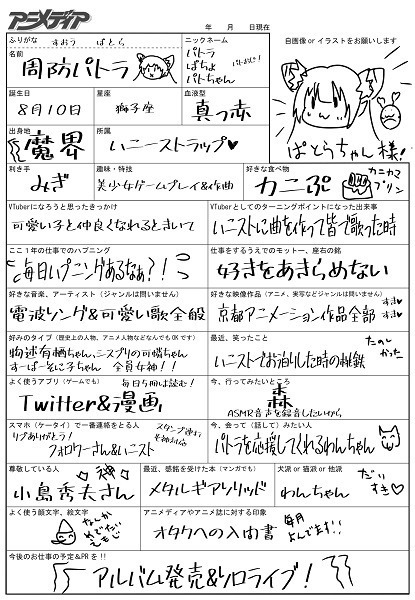 アニメディア
年 月 日現在
ふりがな すおう ぱとら
名前
周防パトラ
ニックネーム
パトラ
ぱちょ
パトちゃん
自画像 or イラストをお願いします
ぱとらちゃん様!
誕生日
8月10日
星座
獅子座
血液型
真っ赤
出身地
魔界
所属
ハニーストラップ♥
利き手
みぎ
趣味・特技
美少女ゲームプレイ&作曲
好きな食べ物
カニぷ
カニカマプリン
VTuberになろうと思ったきっかけ
可愛い子と仲良くなれるときいて
VTuberとしてのターニングポイントになった出来事
ハニストに曲を作って皆で歌った時
ここ1年の仕事でのハプニング
毎日ハプニングあるなぁ?!
仕事をするうえでのモットー、座右の銘
好きをあきらめない
好きな音楽、アーティスト(ジャンルは問いません)
電波ソング&可愛い歌全般
好きな映像作品(アニメ、実写などジャンルは問いません)
京都アニメーション作品全部
すき♥
すき♥
好みのタイプ(歴史上の人物、アニメ人物などなんでもOKです)
物述有栖ちゃん、ニスプリの可憐ちゃん
すーぱーそに子ちゃん 全員女神!!
最近、笑ったこと
ハニストでお泊りした時の挑戦
たのしかった
よく使うアプリ(ゲームでも)
毎日5冊は読む!
Twitter&漫画
今、行ってみたいところ
森
ASMR音声を録音したいから
スマホ(ケータイ)で一番連絡をとる人
リプありがとう!
フォロワーさん&ハニスト
スタンプ連打
今、会って(話して)みたい人
パトラを応援してくれるわんちゃん
尊敬している人
神
小島秀夫さん
最近、感銘を受けた本(マンガでも)
メタルギアソリッド
犬派 or 猫派 or 他派
だいすき♥
わんちゃん
よく使う顔文字、絵文字
なんかめでたいもの
アニメディアやアニメ誌に対する印象
オタクへの入門書
毎月よんでます!!
今後のお仕事の予定&PRを!!
アルバム発売&ソロライブ!